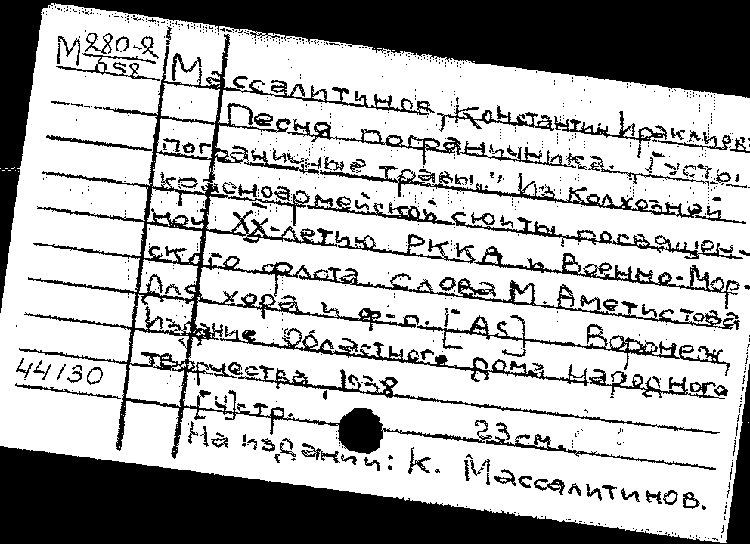 М 280-2
658
Массалитинов, Константин Ираклиев
Песня пограничника. „Густы
пограничные травы..." Из Колхозной
красноармейской сюиты, посвящен-
ной XX-летию РККА и Военно-Мор-
ского флота. Слова М. Аметистова
Для хора и ф-п. [As] Воронеж,
Издание Областного дома народного
творчества, 1938
44130
[4] стр. 23 см.
На издании: К. Массалитинов.